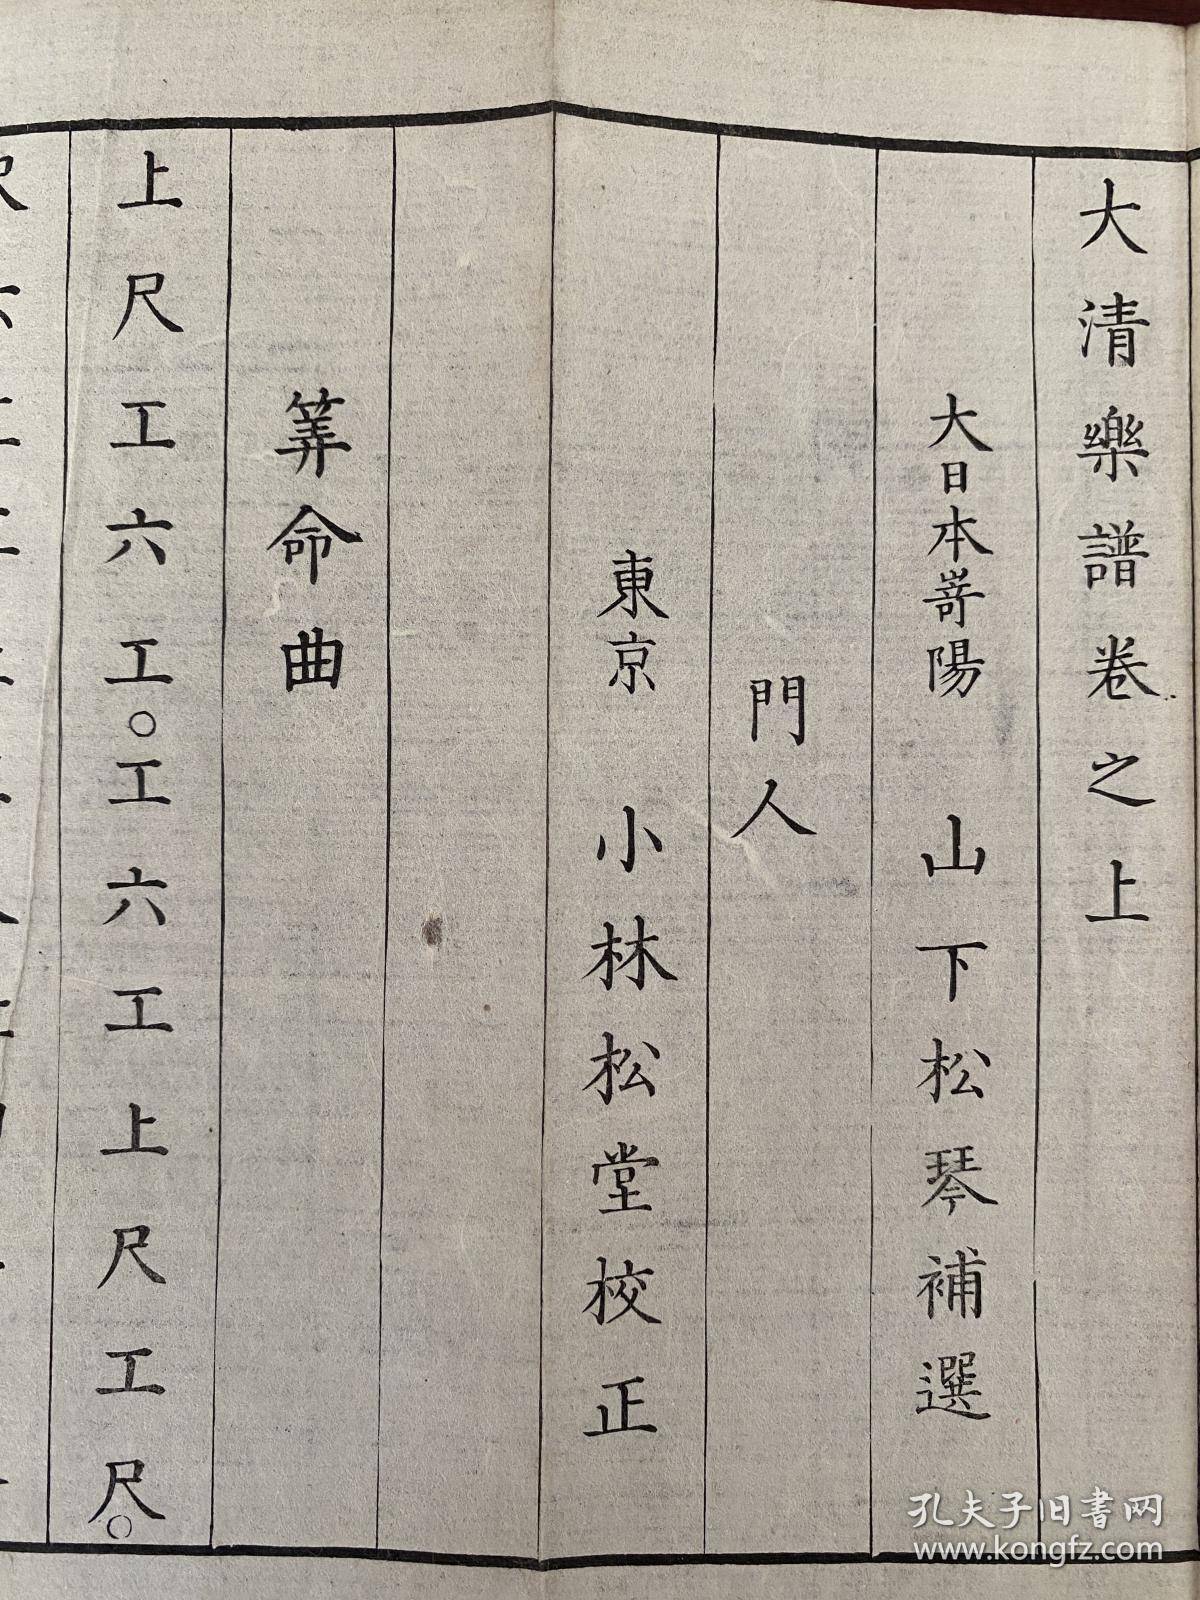 大清樂譜卷之上
大日本嵜陽　山下松琴補選
門人
東京　小林松堂校正
筭命曲
上尺工六工○工六工上尺工尺○
孔夫子旧書网
www.kongfz.com